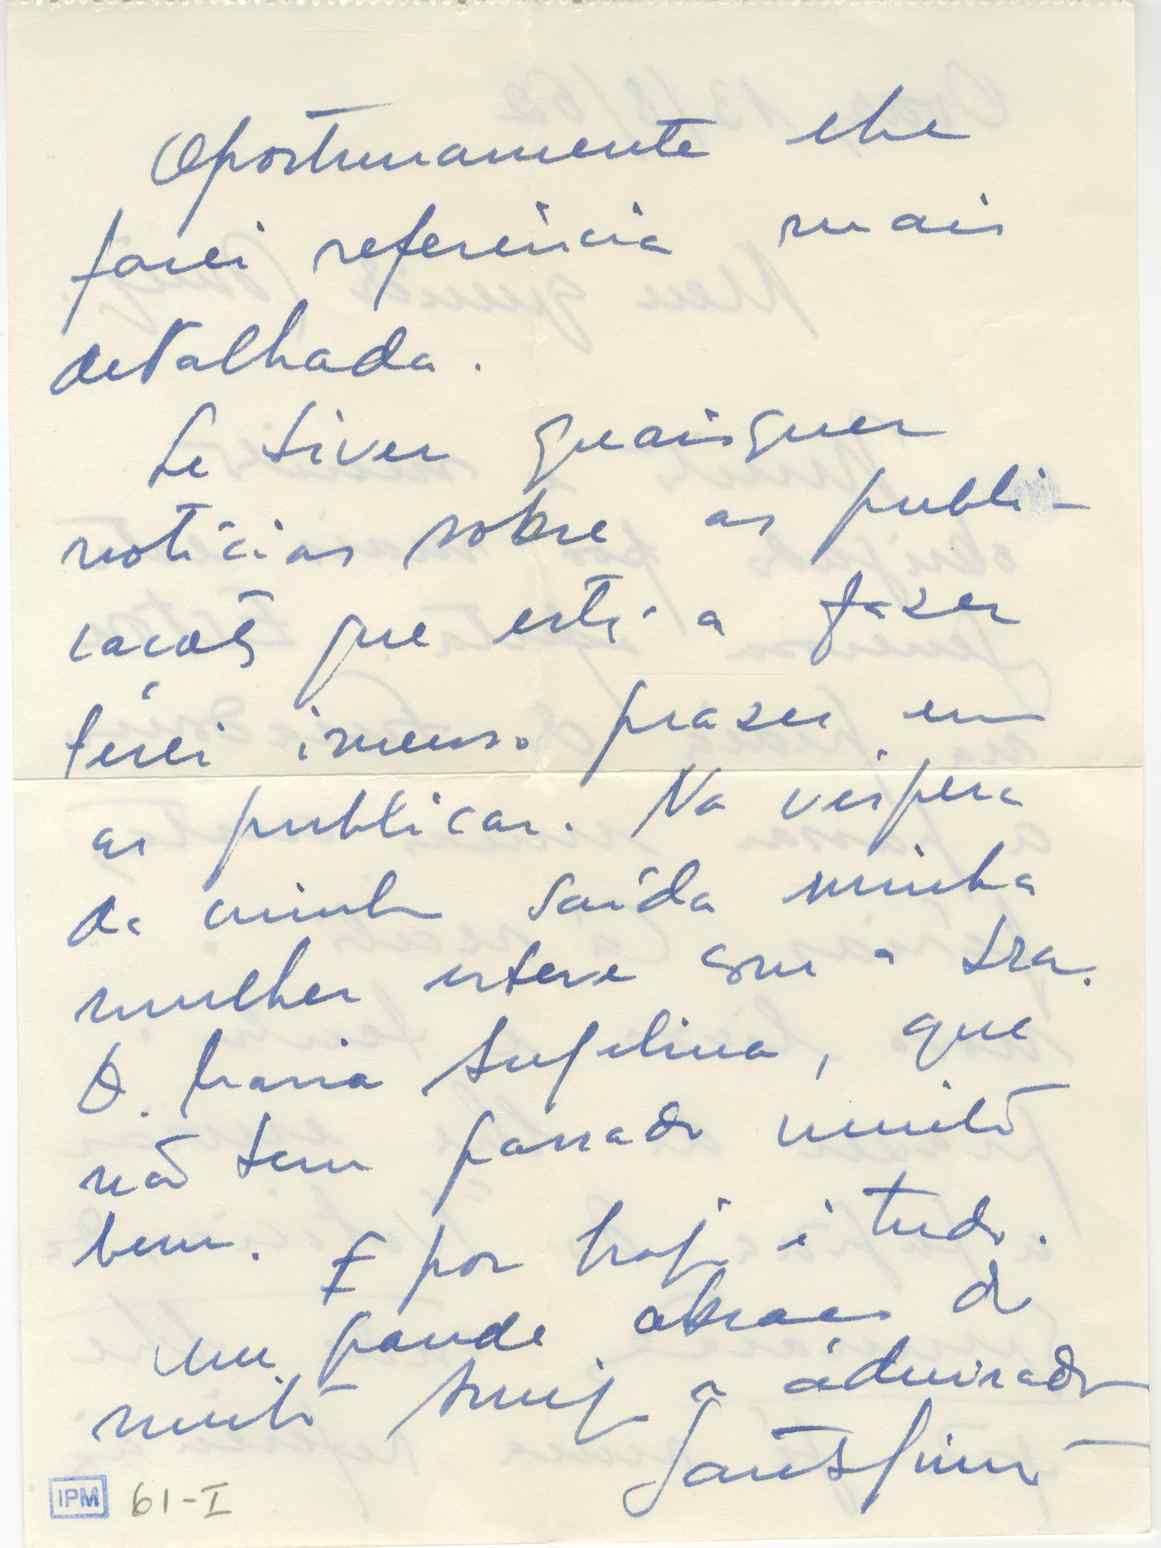 Oportunamente lhe
farei referência mais
detalhada.
Se tiver quaisquer
notícias sobre as publi-
cações que está a fazer
terei imenso prazer em
as publicar. Na véspera
da minha saída minha
mulher esteve com a Sra.
D. Maria Angelina, que
não tem passado muito
bem. E por hoje é tudo.
Um grande abraço do
muito amigo e admirador
Santos Simões
IPM 61-I